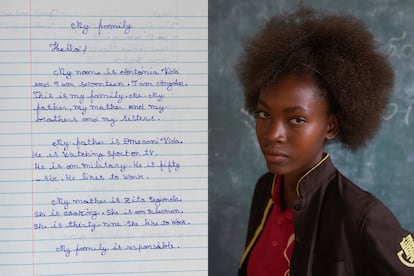 My family
Hello!
My name is Antónia Vida
and I am seventeen. I am Angolan.
This is my family. Me, My
father, my mother and my
brothers and my sisters.
My father is Domingos Vida.
He is watching sport on TV.
He is an military. He is fifty
-six. He likes to work.
My mother is Zita Segunda.
She is cooking. She is an saleswoman.
She is thirty-nine. She like to work.
My family is responsible.